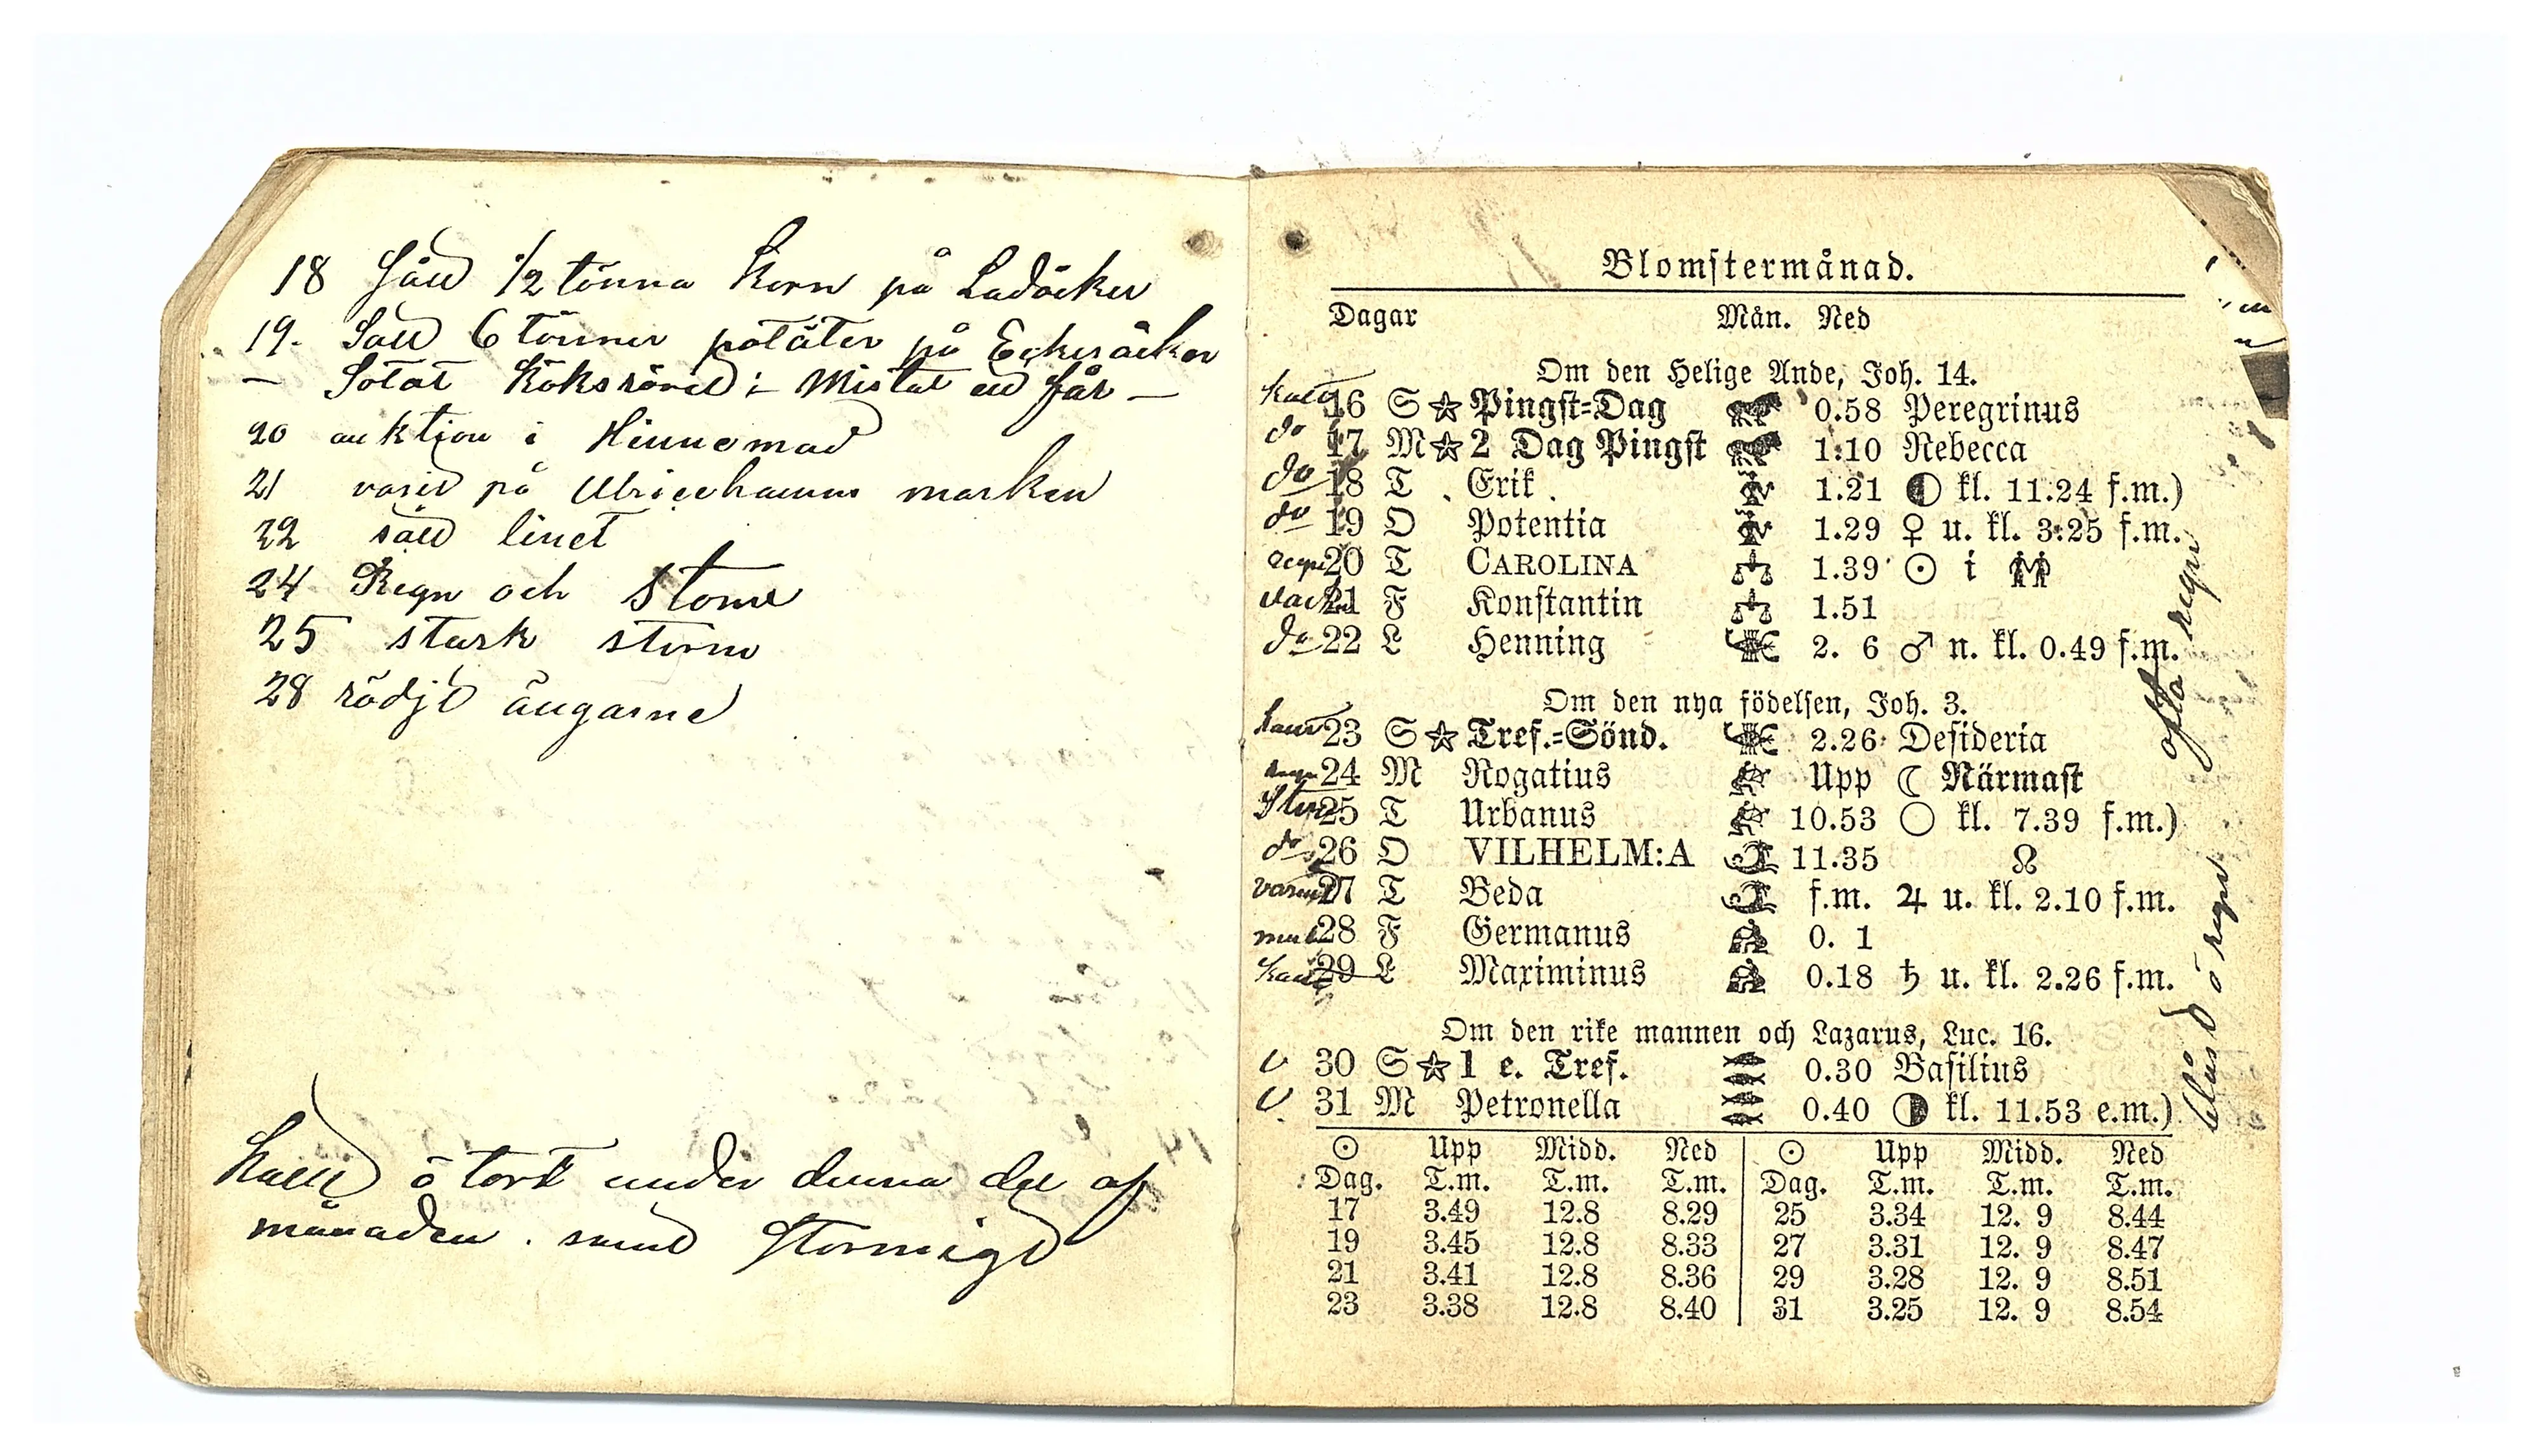 18 såld 1/2 tönna Korn på Ladåcker
19. Satt 6 tönner potäter på Eckersåcker
— Sotat Köksröret :- Mistat ett får —
20 auktion i Hinnemad
21 varit på Ulricehamns marken
22 sått linet
24 Regn och Storm
25 stark storm
28 rödjt ängarne
Kallt ö tort under denna del af
månaden . samt Stormigt
Blomstermånad.
Dagar Mån. Ned
Om den Helige Ande, Joh. 14.
kallt 16 S ☆ Pingst=Dag 0.58 Peregrinus
do 17 M ☆ 2 Dag Pingst 1.10 Rebecca
do 18 T Erik 1.21 ◐ kl. 11.24 f.m.)
do 19 O Potentia 1.29 ♀ u. kl. 3.25 f.m.
regn 20 T CAROLINA 1.39 ☉ i
vackert 21 F Konstantin 1.51
do 22 L Henning 2. 6 ♂ n. kl. 0.49 f.m.
Om den nya födelsen, Joh. 3.
23 S ☆ Tref.=Sönd. 2.26 Desideria
regn 24 M Rogatius Upp ☾ Närmast
Storm 25 T Urbanus 10.53 ○ kl. 7.39 f.m.)
do 26 O VILHELM:A 11.35 ☊
varmt 27 T Beda f.m. ♃ u. kl. 2.10 f.m.
mul 28 F Germanus 0. 1
kallt 29 L Maximinus 0.18 ♄ u. kl. 2.26 f.m.
Om den rike mannen och Lazarus, Luc. 16.
v 30 S ☆ 1 e. Tref. 0.30 Basilius
v. 31 M Petronella 0.40 ◑ kl. 11.53 e.m.)
☉ Upp Midd. Ned ☉ Upp Midd. Ned
Dag. T.m. T.m. T.m. Dag. T.m. T.m. T.m.
17 3.49 12.8 8.29 25 3.34 12. 9 8.44
19 3.45 12.8 8.33 27 3.31 12. 9 8.47
21 3.41 12.8 8.36 29 3.28 12. 9 8.51
23 3.38 12.8 8.40 31 3.25 12. 9 8.54
ofta regn
blåst ö regn